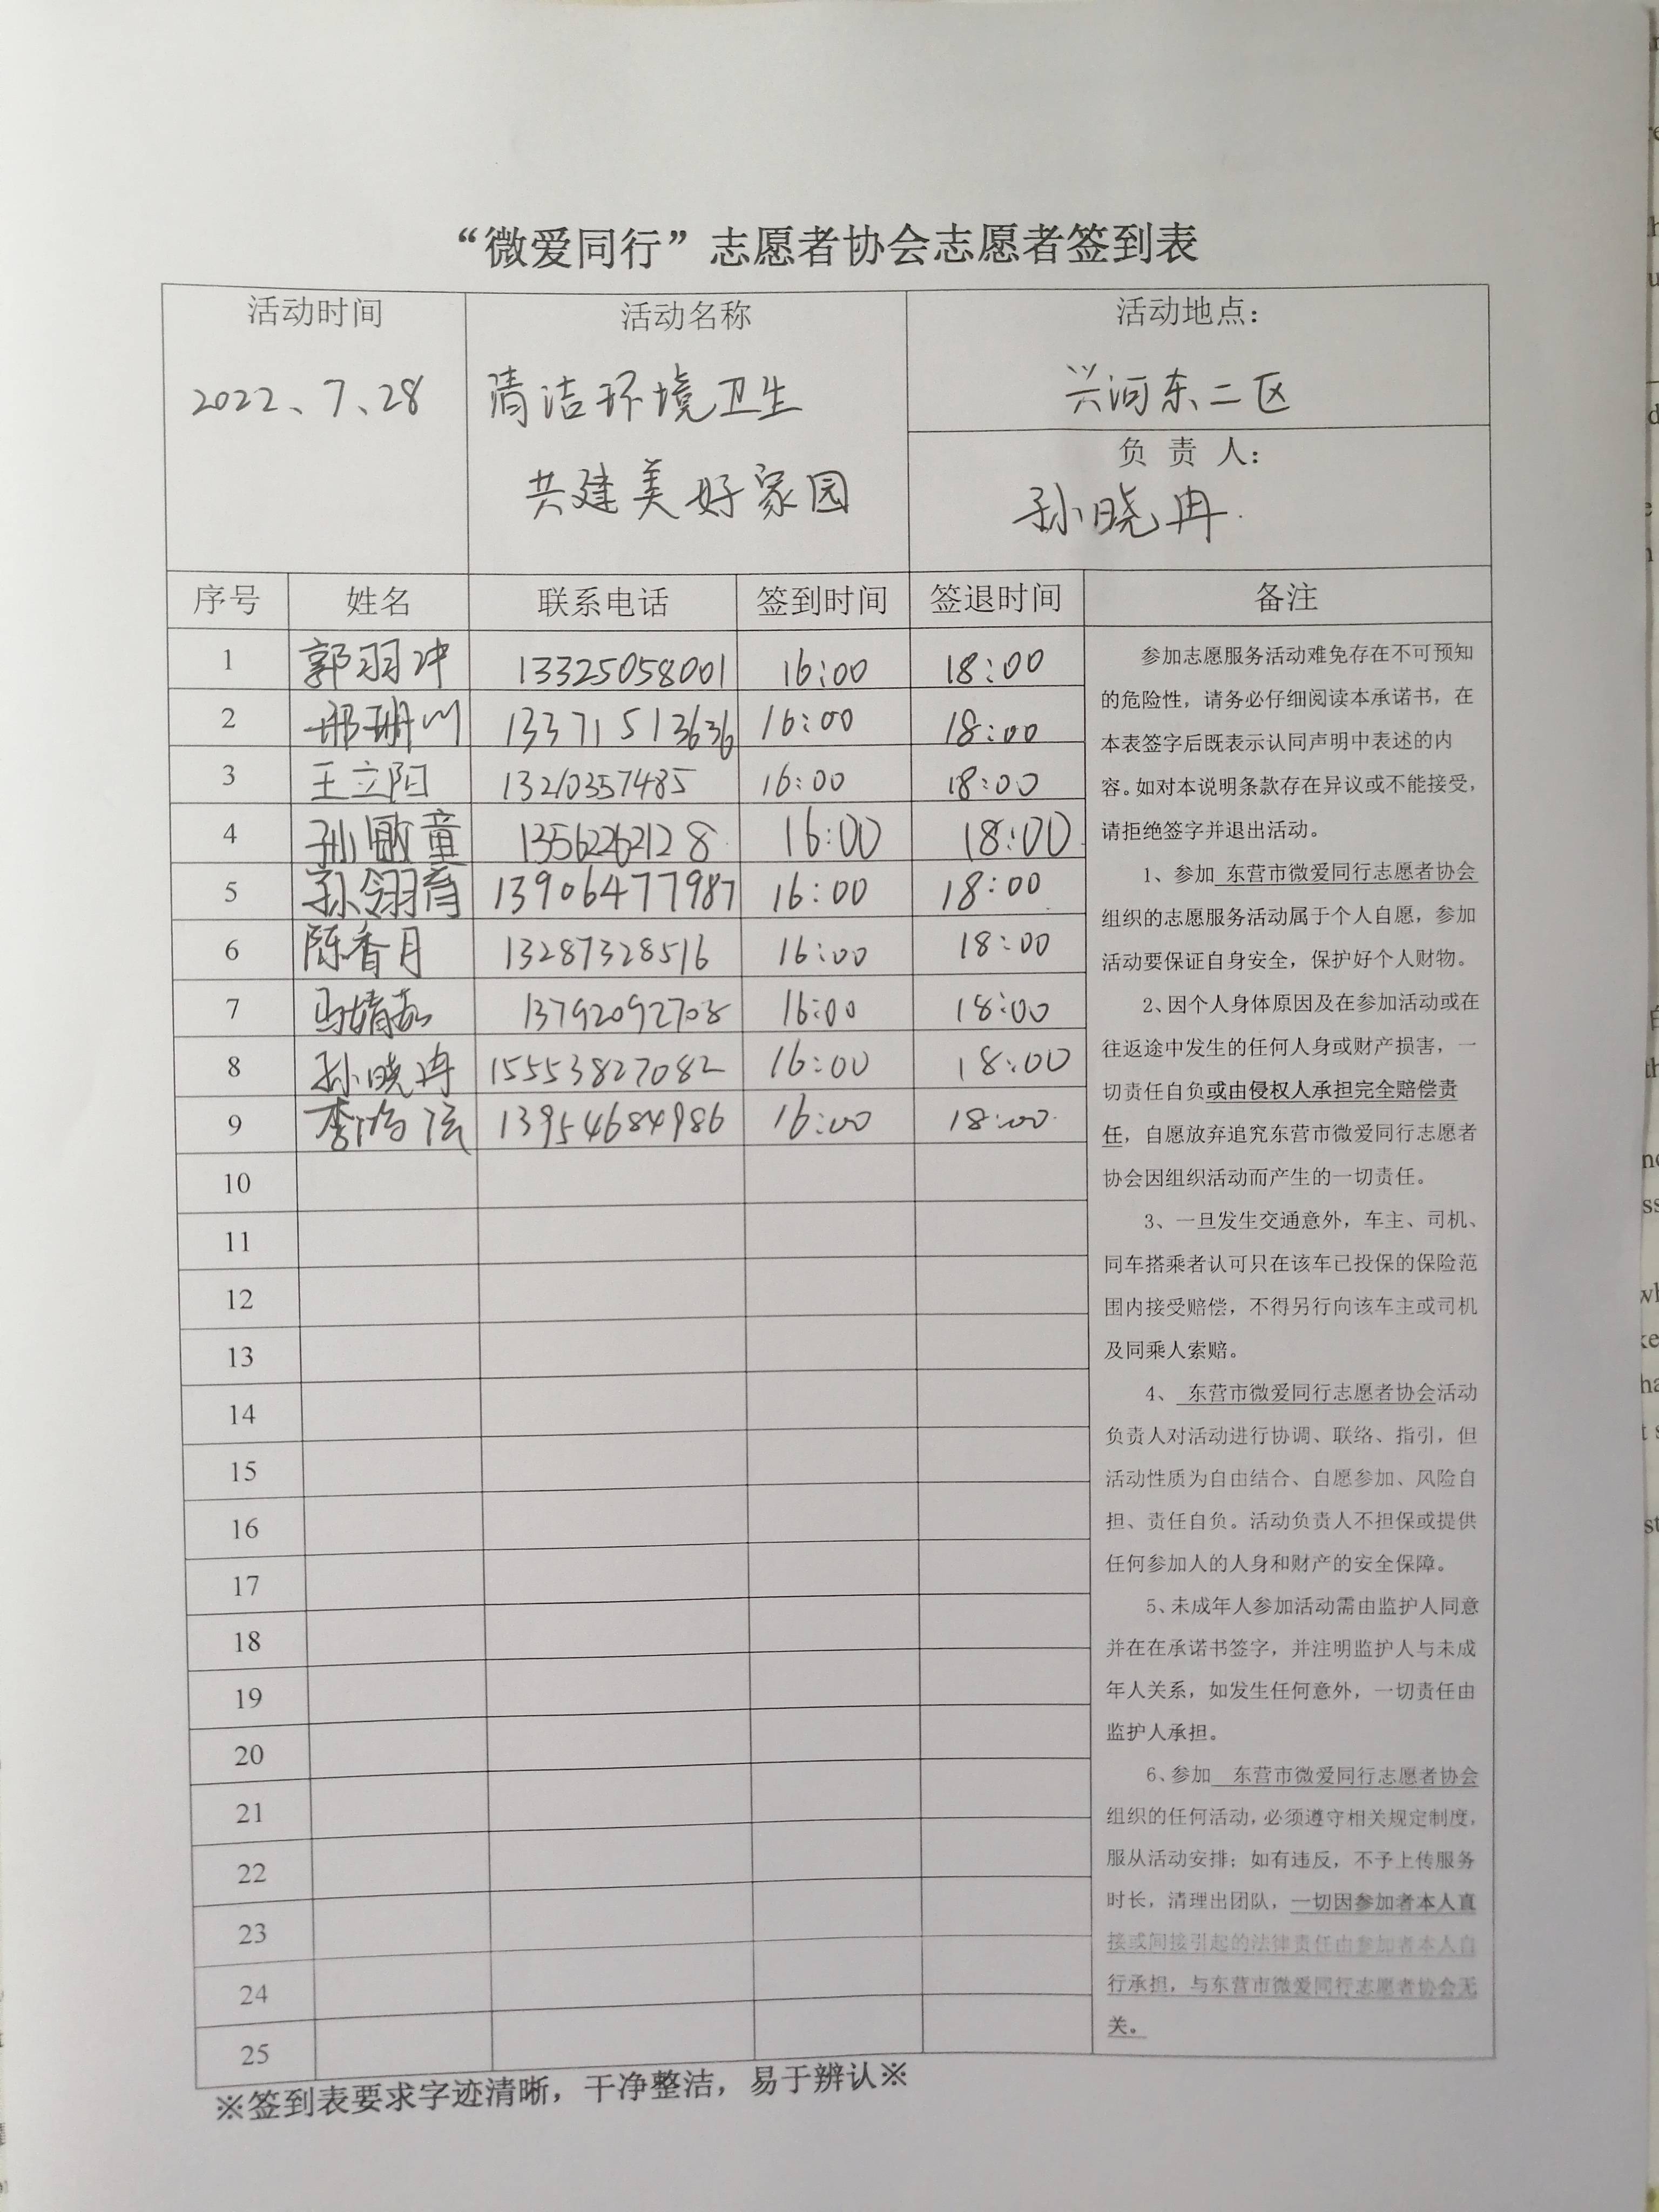 “微爱同行”志愿者协会志愿者签到表
活动时间 活动名称 活动地点：
2022、7、28 清洁环境卫生 兴河东二区
共建美好家园
负 责 人：
孙晓冉
序号 姓名 联系电话 签到时间 签退时间 备注
1 郭羽冲 13325058001 16:00 18:00
2 邢珊 13371513636 16:00 18:00
3 王立阳 13210357485 16:00 18:00
4 孙童 13562262128 16:00 18:00
5 孙翎育 13906477987 16:00 18:00
6 陈香月 13287328516 16:00 18:00
7 马婧 13792092708 16:00 18:00
8 孙晓冉 15553827082 16:00 18:00
9 李 13954684986 16:00 18:00
10
11
12
13
14
15
16
17
18
19
20
21
22
23
24
25
参加志愿服务活动难免存在不可预知
的危险性，请务必仔细阅读本承诺书，在
本表签字后既表示认同声明中表述的内
容。如对本说明条款存在异议或不能接受，
请拒绝签字并退出活动。
1、参加 东营市微爱同行志愿者协会
组织的志愿服务活动属于个人自愿，参加
活动要保证自身安全，保护好个人财物。
2、因个人身体原因及在参加活动或在
往返途中发生的任何人身或财产损害，一
切责任自负或由侵权人承担完全赔偿责
任，自愿放弃追究东营市微爱同行志愿者
协会因组织活动而产生的一切责任。
3、一旦发生交通意外，车主、司机、
同车搭乘者认可只在该车已投保的保险范
围内接受赔偿，不得另行向该车主或司机
及同乘人索赔。
4、 东营市微爱同行志愿者协会活动
负责人对活动进行协调、联络、指引，但
活动性质为自由结合、自愿参加、风险自
担、责任自负。活动负责人不担保或提供
任何参加人的人身和财产的安全保障。
5、未成年人参加活动需由监护人同意
并在在承诺书签字，并注明监护人与未成
年人关系，如发生任何意外，一切责任由
监护人承担。
6、参加 东营市微爱同行志愿者协会
组织的任何活动，必须遵守相关规定制度，
服从活动安排；如有违反，不予上传服务
时长，清理出团队，一切因参加者本人直
接或间接引起的法律责任由参加者本人自
行承担，与东营市微爱同行志愿者协会无
关。
※签到表要求字迹清晰，干净整洁，易于辨认※